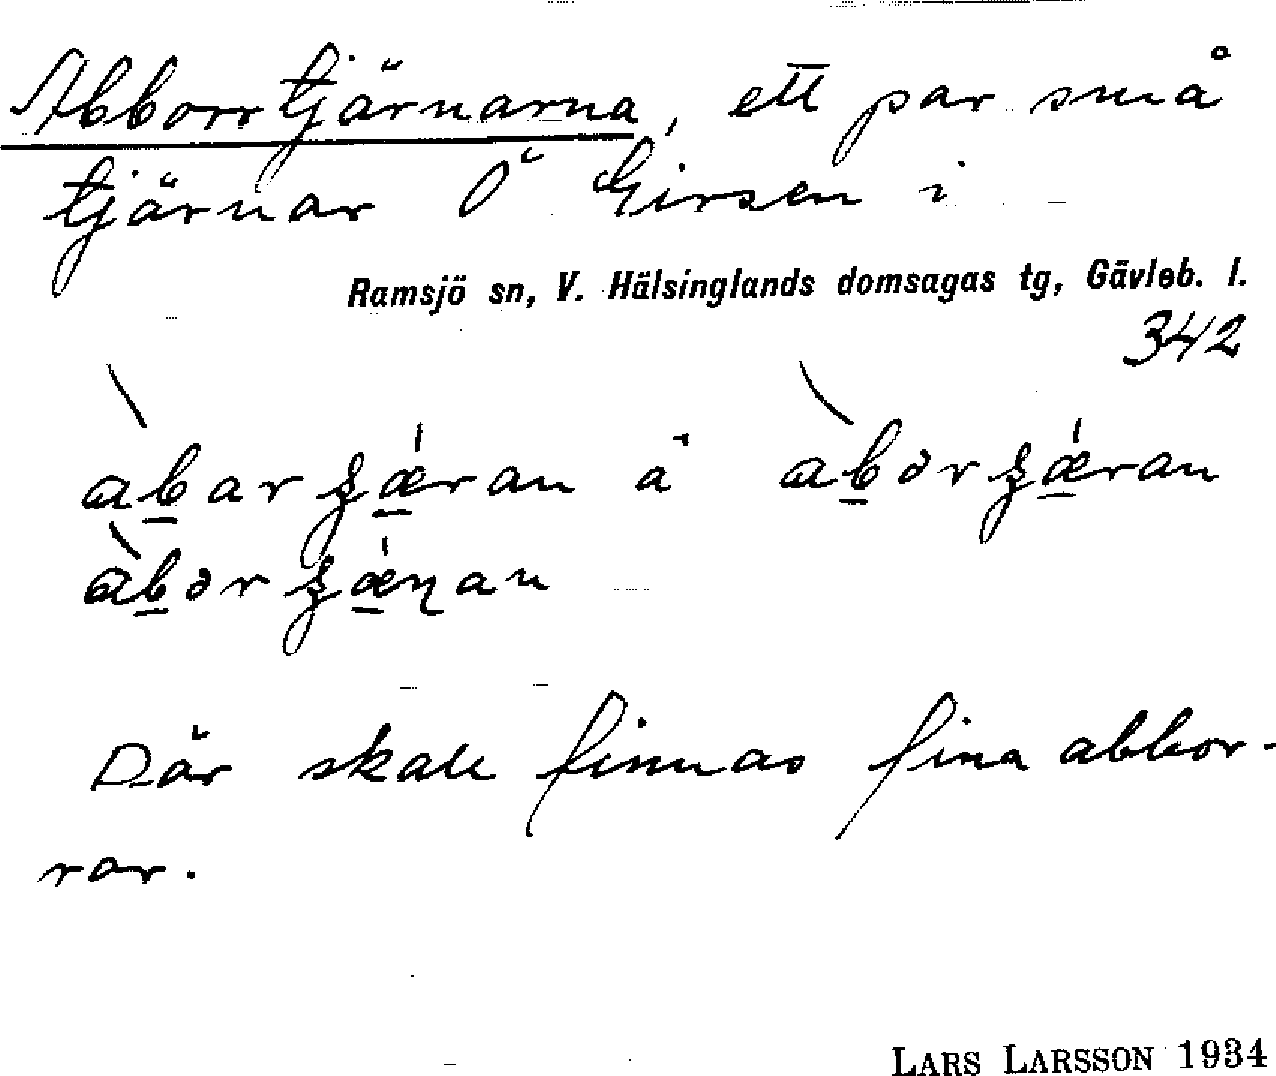 Abborrtjärnarna, ett par små
tjärnar Ö Girsen i
Ramsjö sn, V. Hälsinglands domsagas tg, Gävleb. l.
342
å
Där skall finnas fina abbor-
rar.
LARS LARSSON 1934